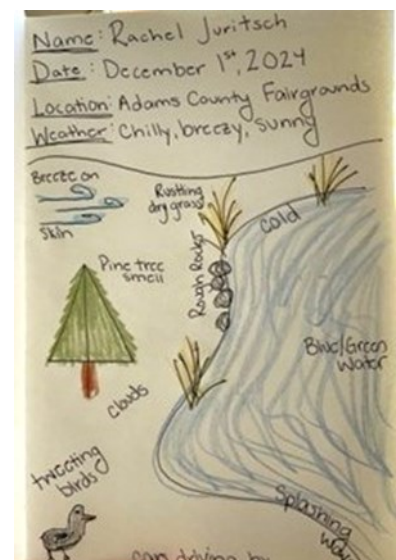 Name: Rachel Juritsch
Date: December 1st, 2024
Location: Adams County Fairgrounds
Weather: Chilly, breezy, sunny
Breeze on
Skin
Rustling
dry grass
cold
Pine tree
smell
Rough Rocks
Blue/Green
Water
clouds
tweeting
birds
Splashing
driving by